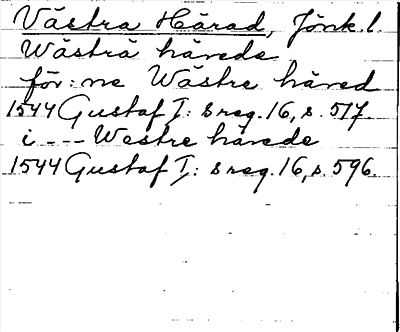 Västra Härad, Jönk. l.
Wästrä härede
för: ne Wästre häred
1544 Gustaf I: s reg. 16, s. 517.
i --- Westre härede
1544 Gustaf I: s reg. 16, s. 596.